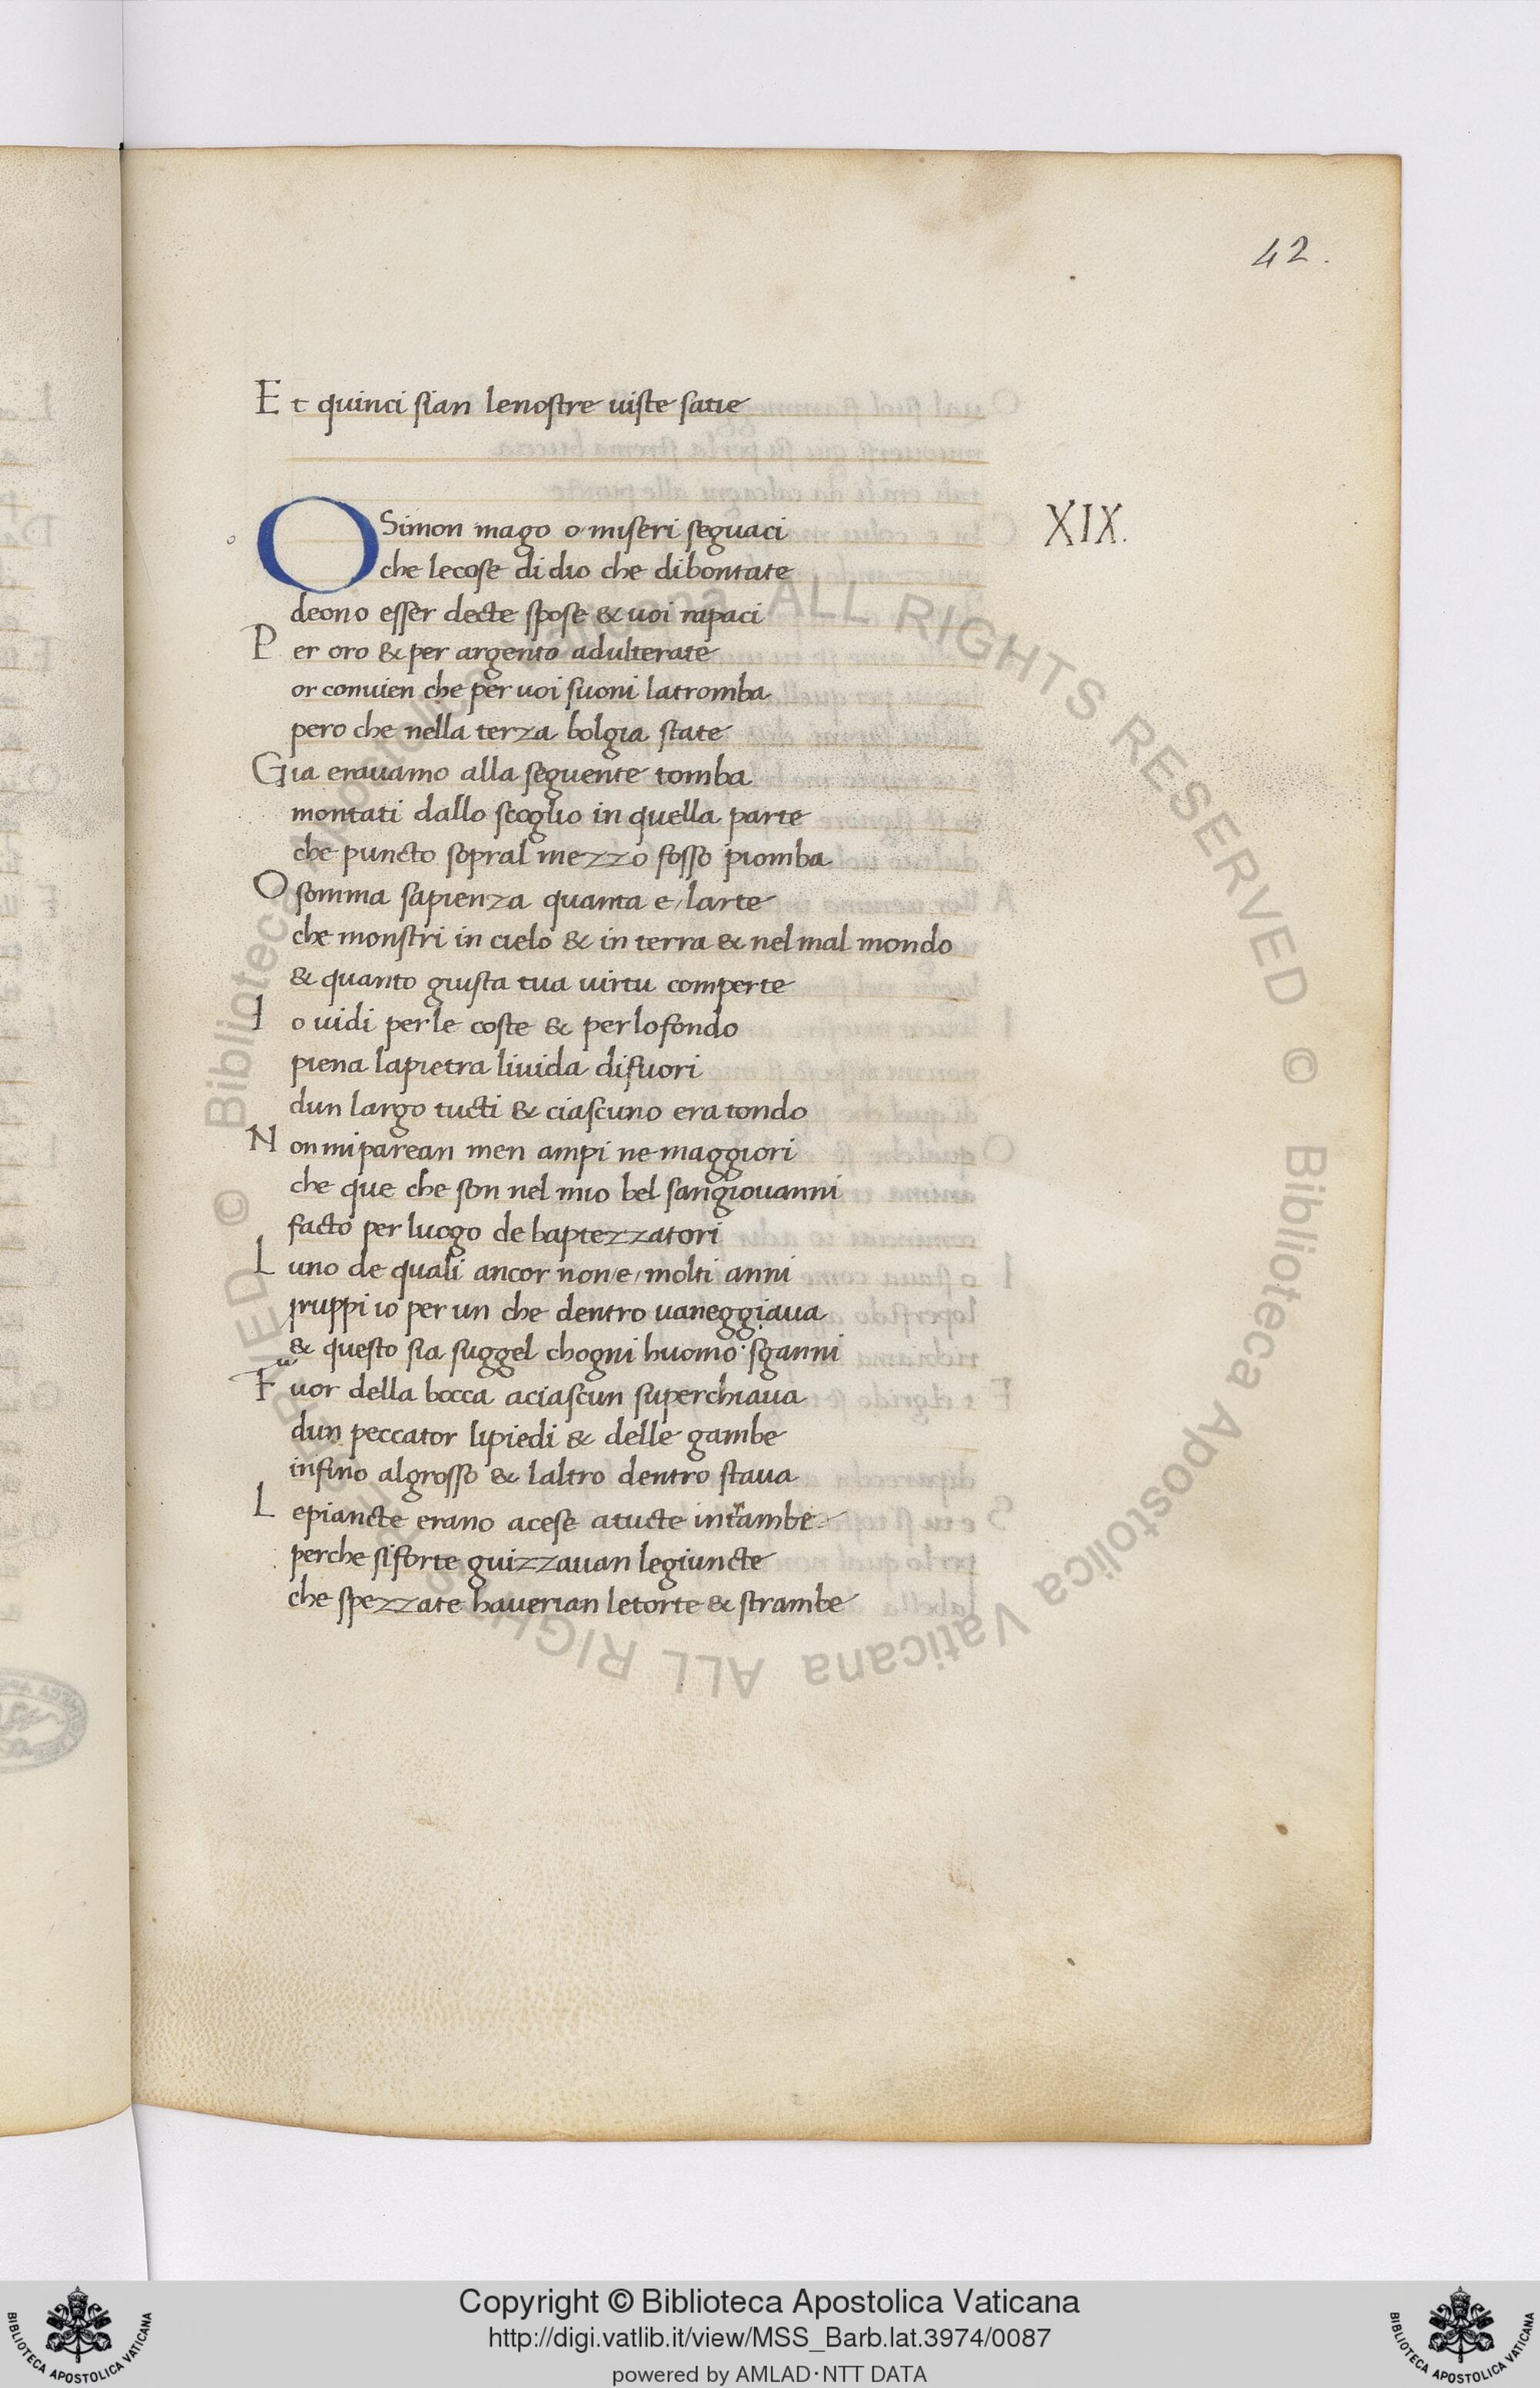 42.
Et quinci sian lenostre uiste satie
XIX.
O Simon mago o miseri seguaci
che lecose di dio che dibontate
deono esser decte spose & uoi rapaci
Per oro & per argento adulterate
or conuien che per uoi suoni latromba
pero che nella terza bolgia state
Gia erauamo alla seguente tomba
montati dallo scoglio in quella parte
che puncto sopral mezzo fosso piomba
O somma sapienza quanta e/ larte
che monstri in cielo & in terra & nel mal mondo
& quanto giusta tua uirtu comperte
Io uidi perle coste & perlofondo
piena lapietra liuida difuori
dun largo tucti & ciascuno era tondo
Non miparean men ampi ne maggiori
che que che son nel mio bel sangiouanni
facto per luogo de baptezzatori
Luno de quali ancor non/e/ molti anni
ruppi io per un che dentro uaneggiaua
& questo sia suggel chogni huomo sganni
Fuor della bocca aciascun superchiaua
dun peccator lipiedi & delle gambe
infino algrosso & laltro dentro staua
Lepiancte erano acese atucte intrambe
perche siforte guizzauan legiuncte
che spezzate hauerian letorte & strambe
© Biblioteca Apostolica Vaticana ALL RIGHTS RESERVED © Biblioteca Apostolica Vaticana ALL RIGHTS RESERVED
Copyright © Biblioteca Apostolica Vaticana
http://digi.vatlib.it/view/MSS_Barb.lat.3974/0087
powered by AMLAD·NTT DATA
BIBLIOTECA APOSTOLICA VATICANA
BIBLIOTECA APOSTOLICA VATICANA